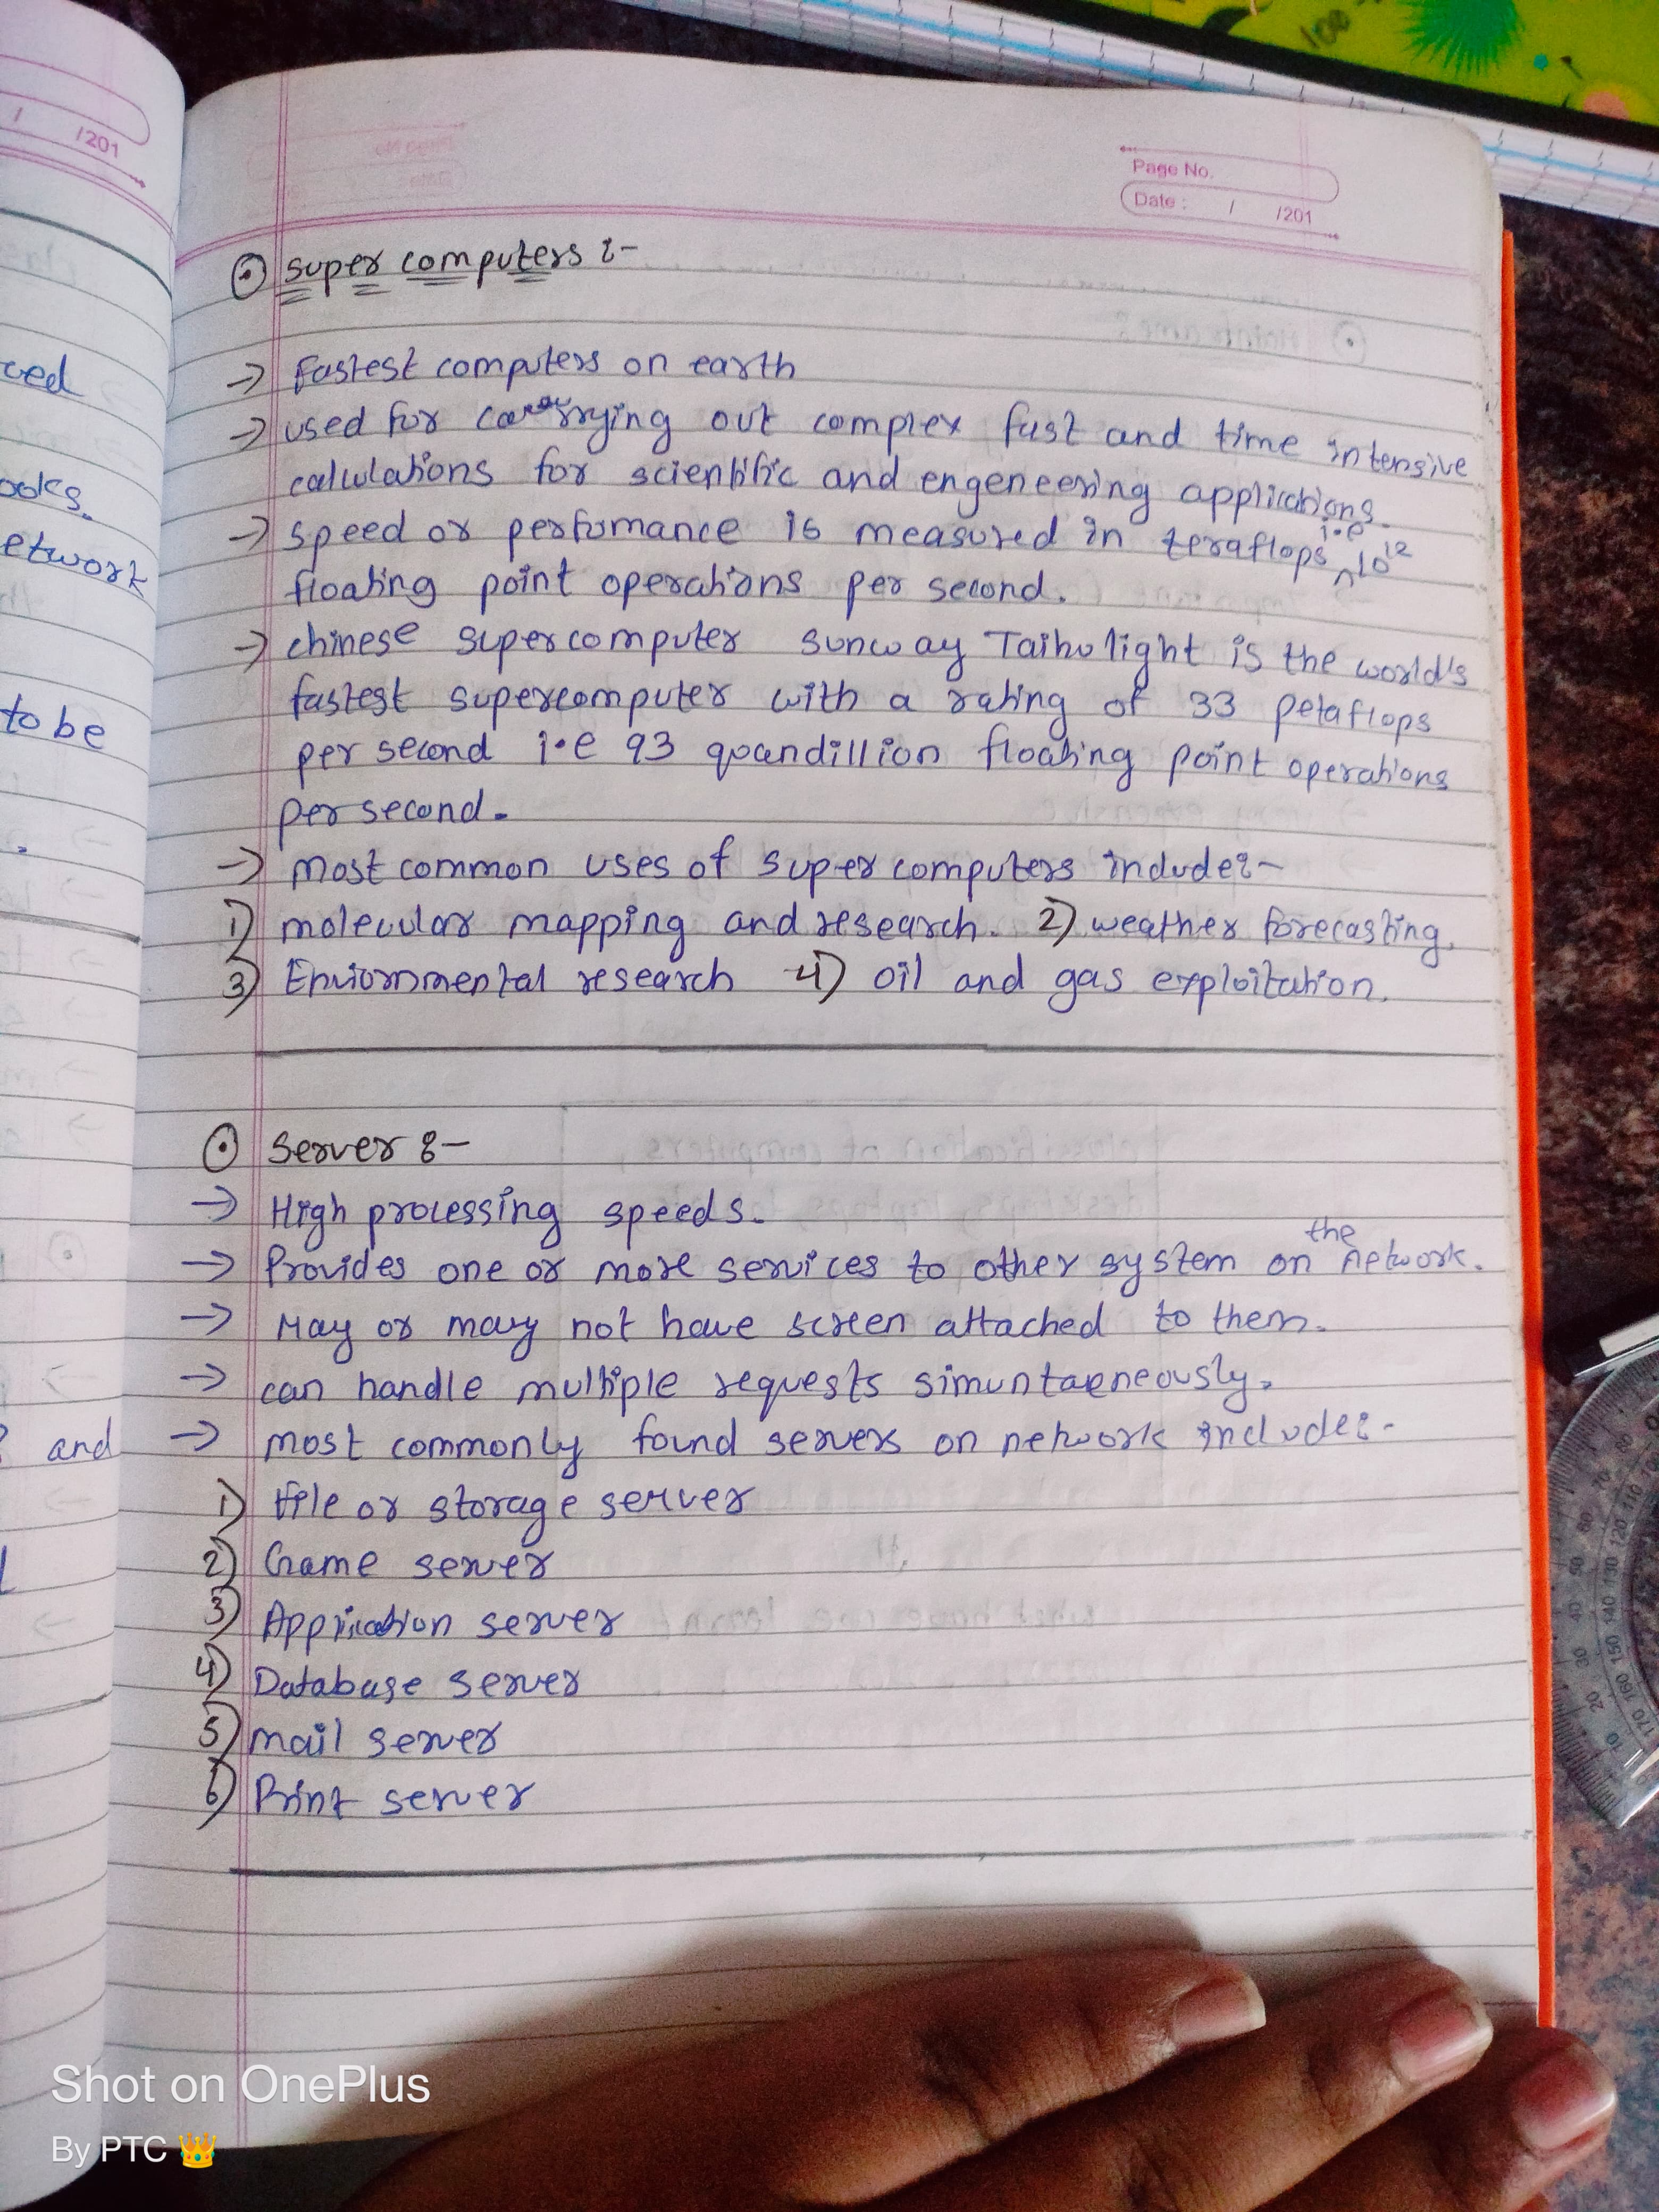 / /201
Page No.
Date : / /201
Super computers :-
→ Fastest computers on earth
→ used for carrying out complex fast and time intensive
calculations for scientific and engeneering applications.
→ speed or perfomance is measured in teraflops i.e 10¹²
floating point operations per second.
→ chinese supercomputer sunway Taihulight is the world's
fastest supercomputer with a rating of 33 petaflops
per second i.e 93 quandillion floating point operations
per second.
→ most common uses of super computers include:-
1) molecular mapping and research. 2) weather forecasting.
3) Enviornmental research 4) oil and gas exploitation.
Server :-
→ High processing speeds.
→ Provides one or more services to other system on the network.
→ May or may not have screen attached to them.
→ can handle multiple requests simuntaeneously.
→ most commonly found servers on network include:-
1) File or storage server
2) Game server
3) Application server
4) Database server
5) mail server
6) Print server
ced
ooks.
etwork
to be
and
Shot on OnePlus
By PTC 👑